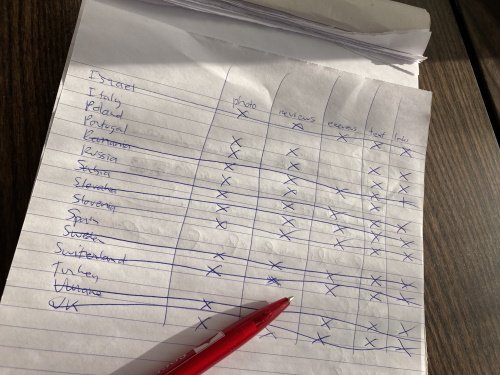 photo reviews express text links
Israel X X X X X
Italy
Poland X X X X
Portugal X X X X
Romania X X X X
Russia X X X X
Serbia X X X X
Slovakia X X X X
Slovenia X X X X
Spain
Sweden X X X X
Switzerland X X X X
Turkey
Ukraine X X X X
UK X X X X X